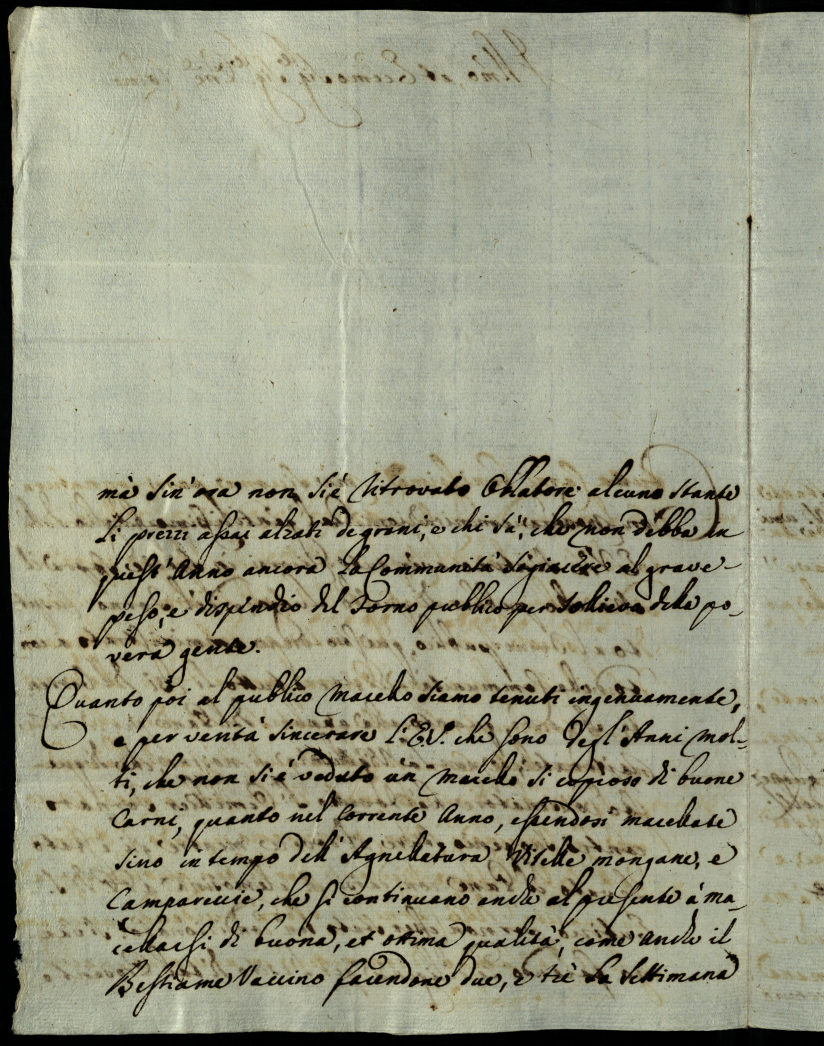 mà sin' ora non si è ritrovato Oblatore alcuno stante
li prezzi assai alzati de grani, e chi sà, che non debba in
quest' Anno ancora la Communità sogiacere al grave
peso, e dispendio del Forno publico per sollievo della po-
vera gente.
Quanto poi al publico Macello siamo tenuti ingenuamente,
e per verità sincerare l'E.V. che sono degl' Anni mol-
ti, che non si è veduto un Macello sì copioso di buone
Carni, quanto nel corrente Anno, essendosi macellate
sino in tempo dell' Agnellatura Vitelle mongane, e
Campareccie, che si continuano anche al presente à ma-
cellarsi di buona, et ottima qualità, come anche il
Bestiame Vaccino facendone due, e trè la settimana